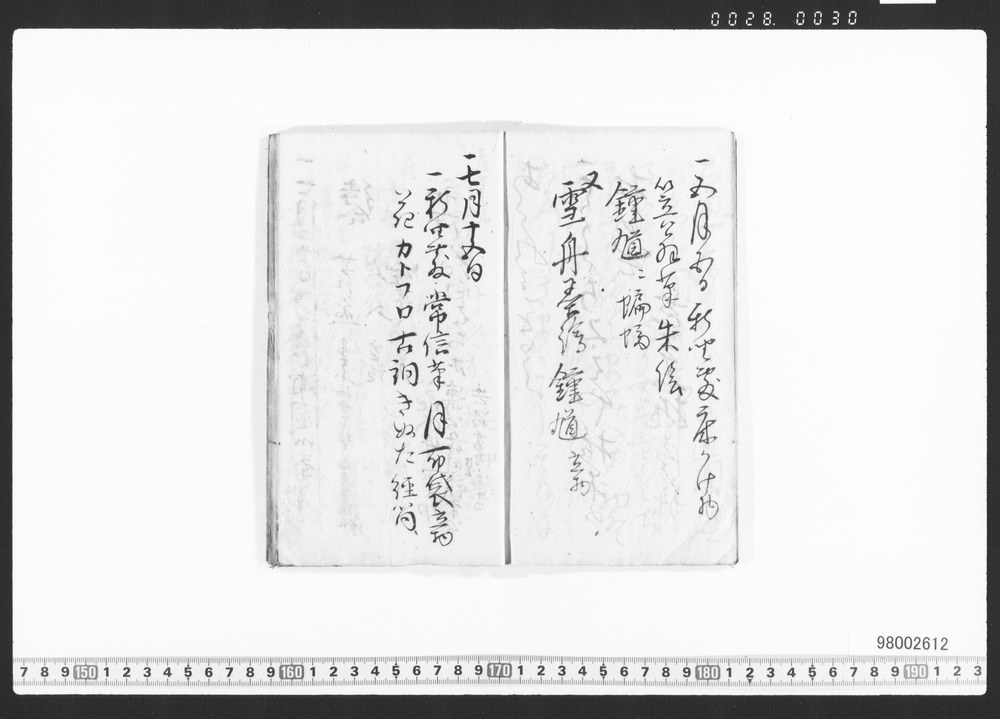 0028. 0030
一五月五日 新座敷床かけ物
笠翁筆朱絵
鍾馗ニ蝙蝠
又
雪舟墨絵鍾馗立物
一七月十五日
一新座敷 常信筆 月布袋立物
花 カトフロ 古詞 きぬた 経筒
98002612
7 8 9 150 1 2 3 4 5 6 7 8 9 160 1 2 3 4 5 6 7 8 9 170 1 2 3 4 5 6 7 8 9 180 1 2 3 4 5 6 7 8 9 190 1 2 3